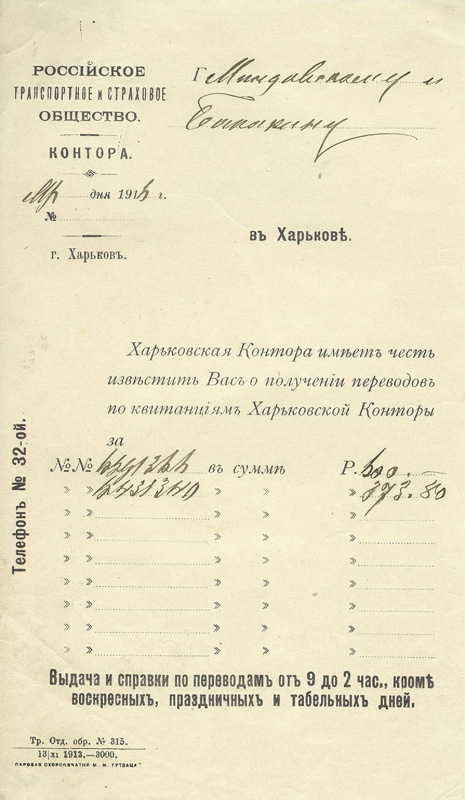 РОССІЙСКОЕ
ТРАНСПОРТНОЕ и СТРАХОВОЕ
ОБЩЕСТВО.
КОНТОРА.
дня 191 г.
№
г. Харьковъ.
Г Миндовскому и
Бакакину
въ Харьковѣ.
Харьковская Контора имѣетъ честь
извѣстить Васъ о полученіи переводовъ
по квитанціямъ Харьковской Конторы
за
№№ въ суммѣ Р. 600.—
» » 6431340 » » » 373.80
» » » » »
» » » » »
» » » » »
» » » » »
» » » » »
» » » » »
» » » » »
Телефонъ № 32-ой.
Выдача и справки по переводамъ отъ 9 до 2 час., кромѣ
воскресныхъ, праздничныхъ и табельныхъ дней.
Тр. Отд. обр. № 315.
13|XI 1913.—3000.
ПАРОВАЯ СКОРОПЕЧАТНЯ И. М. ГУТЗАЦА"